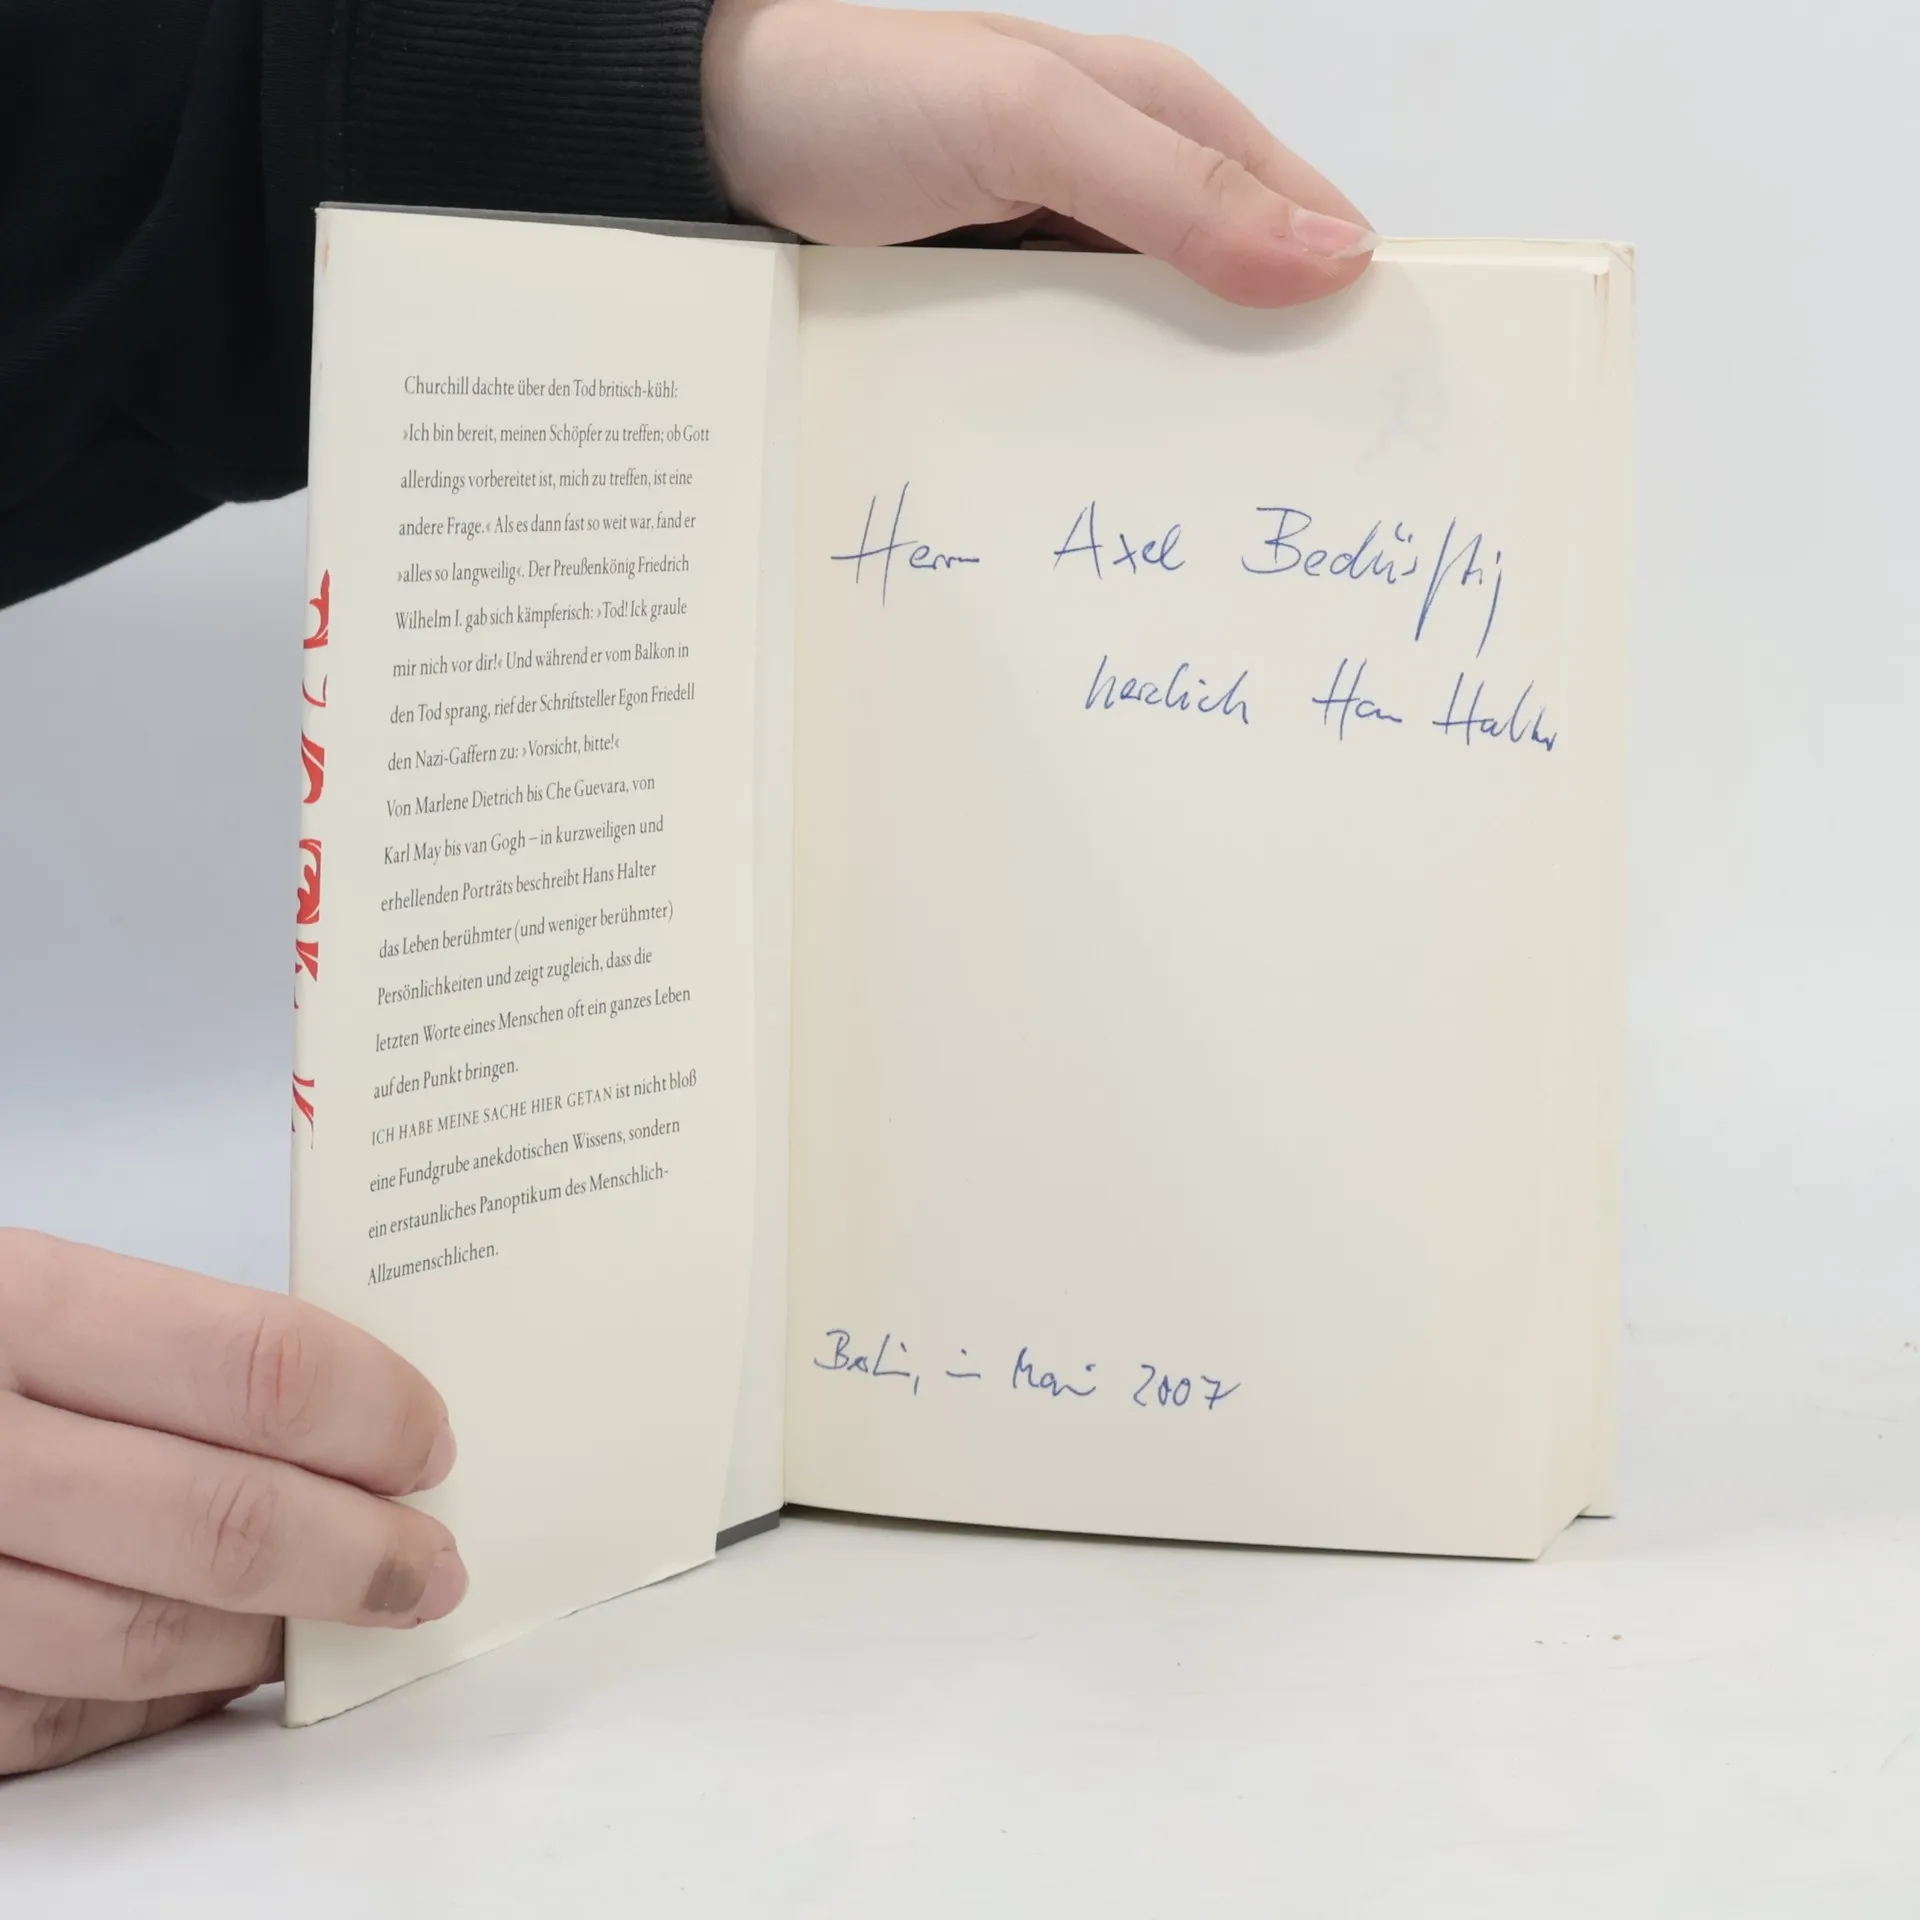 Churchill dachte über den Tod britisch-kühl:
›Ich bin bereit, meinen Schöpfer zu treffen; ob Gott
allerdings vorbereitet ist, mich zu treffen, ist eine
andere Frage.‹ Als es dann fast so weit war, fand er
›alles so langweilig‹. Der Preußenkönig Friedrich
Wilhelm I. gab sich kämpferisch: ›Tod! Ick graule
mir nich vor dir!‹ Und während er vom Balkon in
den Tod sprang, rief der Schriftsteller Egon Friedell
den Nazi-Gaffern zu: ›Vorsicht, bitte!‹
Von Marlene Dietrich bis Che Guevara, von
Karl May bis van Gogh – in kurzweiligen und
erhellenden Porträts beschreibt Hans Halter
das Leben berühmter (und weniger berühmter)
Persönlichkeiten und zeigt zugleich, dass die
letzten Worte eines Menschen oft ein ganzes Leben
auf den Punkt bringen.
ICH HABE MEINE SACHE HIER GETAN ist nicht bloß
eine Fundgrube anekdotischen Wissens, sondern
ein erstaunliches Panoptikum des Menschlich-
Allzumenschlichen.
Herrn Axel Bedürftig
herzlich Hans Halter
Berlin, im Mai 2007